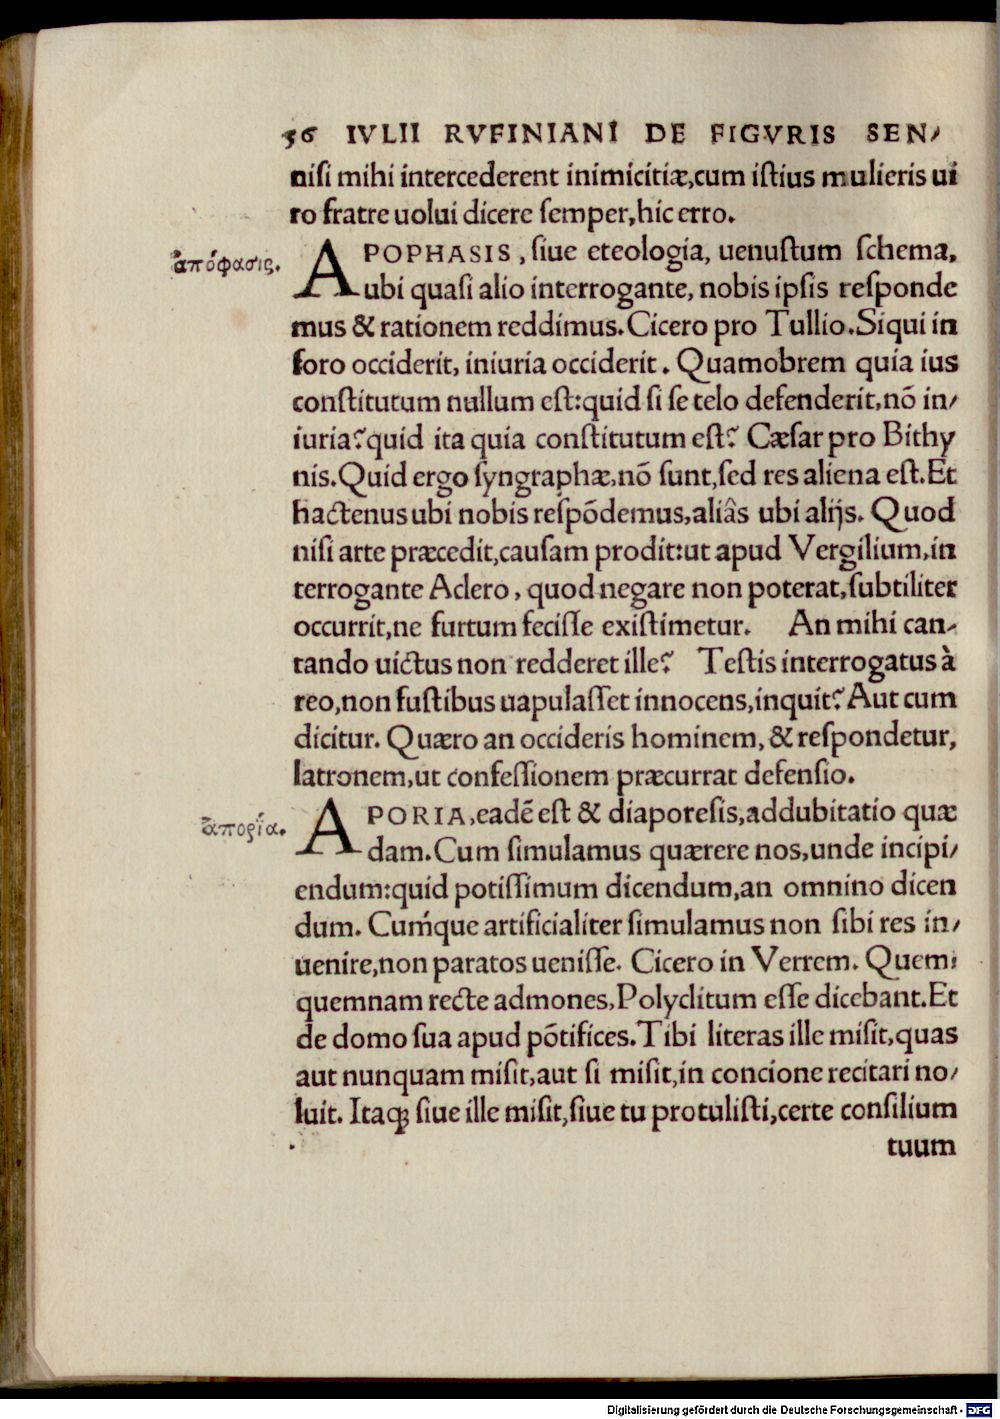 36 IVLII RVFINIANI DE FIGVRIS SEN/
niſi mihi intercederent inimicitiæ,cum iſtius mulieris ui
ro fratre uolui dicere ſemper,hic erro.
ἀπόφασις.
APOPHASIS, ſiue eteologia, uenuſtum ſchema,
ubi quaſi alio interrogante, nobis ipſis reſponde
mus & rationem reddimus.Cicero pro Tullio.Siqui in
foro occiderit, iniuria occiderit. Quamobrem quia ius
conſtitutum nullum eſt:quid ſi ſe telo defenderit,nō in/
iuria?quid ita quia conſtitutum eſt? Cæſar pro Bithy
nis.Quid ergo ſyngraphæ,nō ſunt,ſed res aliena eſt.Et
hactenus ubi nobis reſpōdemus,aliâs ubi alijs. Quod
niſi arte præcedit,cauſam prodit:ut apud Vergilium,in
terrogante Aclero, quod negare non poterat,ſubtiliter
occurrit,ne furtum feciſſe exiſtimetur. An mihi can-
tando uictus non redderet ille? Teſtis interrogatus à
reo,non fuſtibus uapulaſſet innocens,inquit?Aut cum
dicitur. Quæro an occideris hominem, & reſpondetur,
latronem,ut confeſſionem præcurrat defenſio.
ἀπορία.
APORIA,eadē eſt & diaporeſis,addubitatio quæ
dam.Cum ſimulamus quærere nos,unde incipi/
endum:quid potiſſimum dicendum,an omnino dicen
dum. Cuḿque artificialiter ſimulamus non ſibi res in/
uenire,non paratos ueniſſe. Cicero in Verrem. Quem:
quemnam recte admones,Polyclitum eſſe dicebant.Et
de domo ſua apud pōtifices.Tibi literas ille miſit,quas
aut nunquam miſit,aut ſi miſit,in concione recitari no/
luit. Itaqꝫ ſiue ille miſit,ſiue tu protuliſti,certe conſilium
tuum
Digitalisierung gefördert durch die Deutsche Forschungsgemeinschaft - DFG